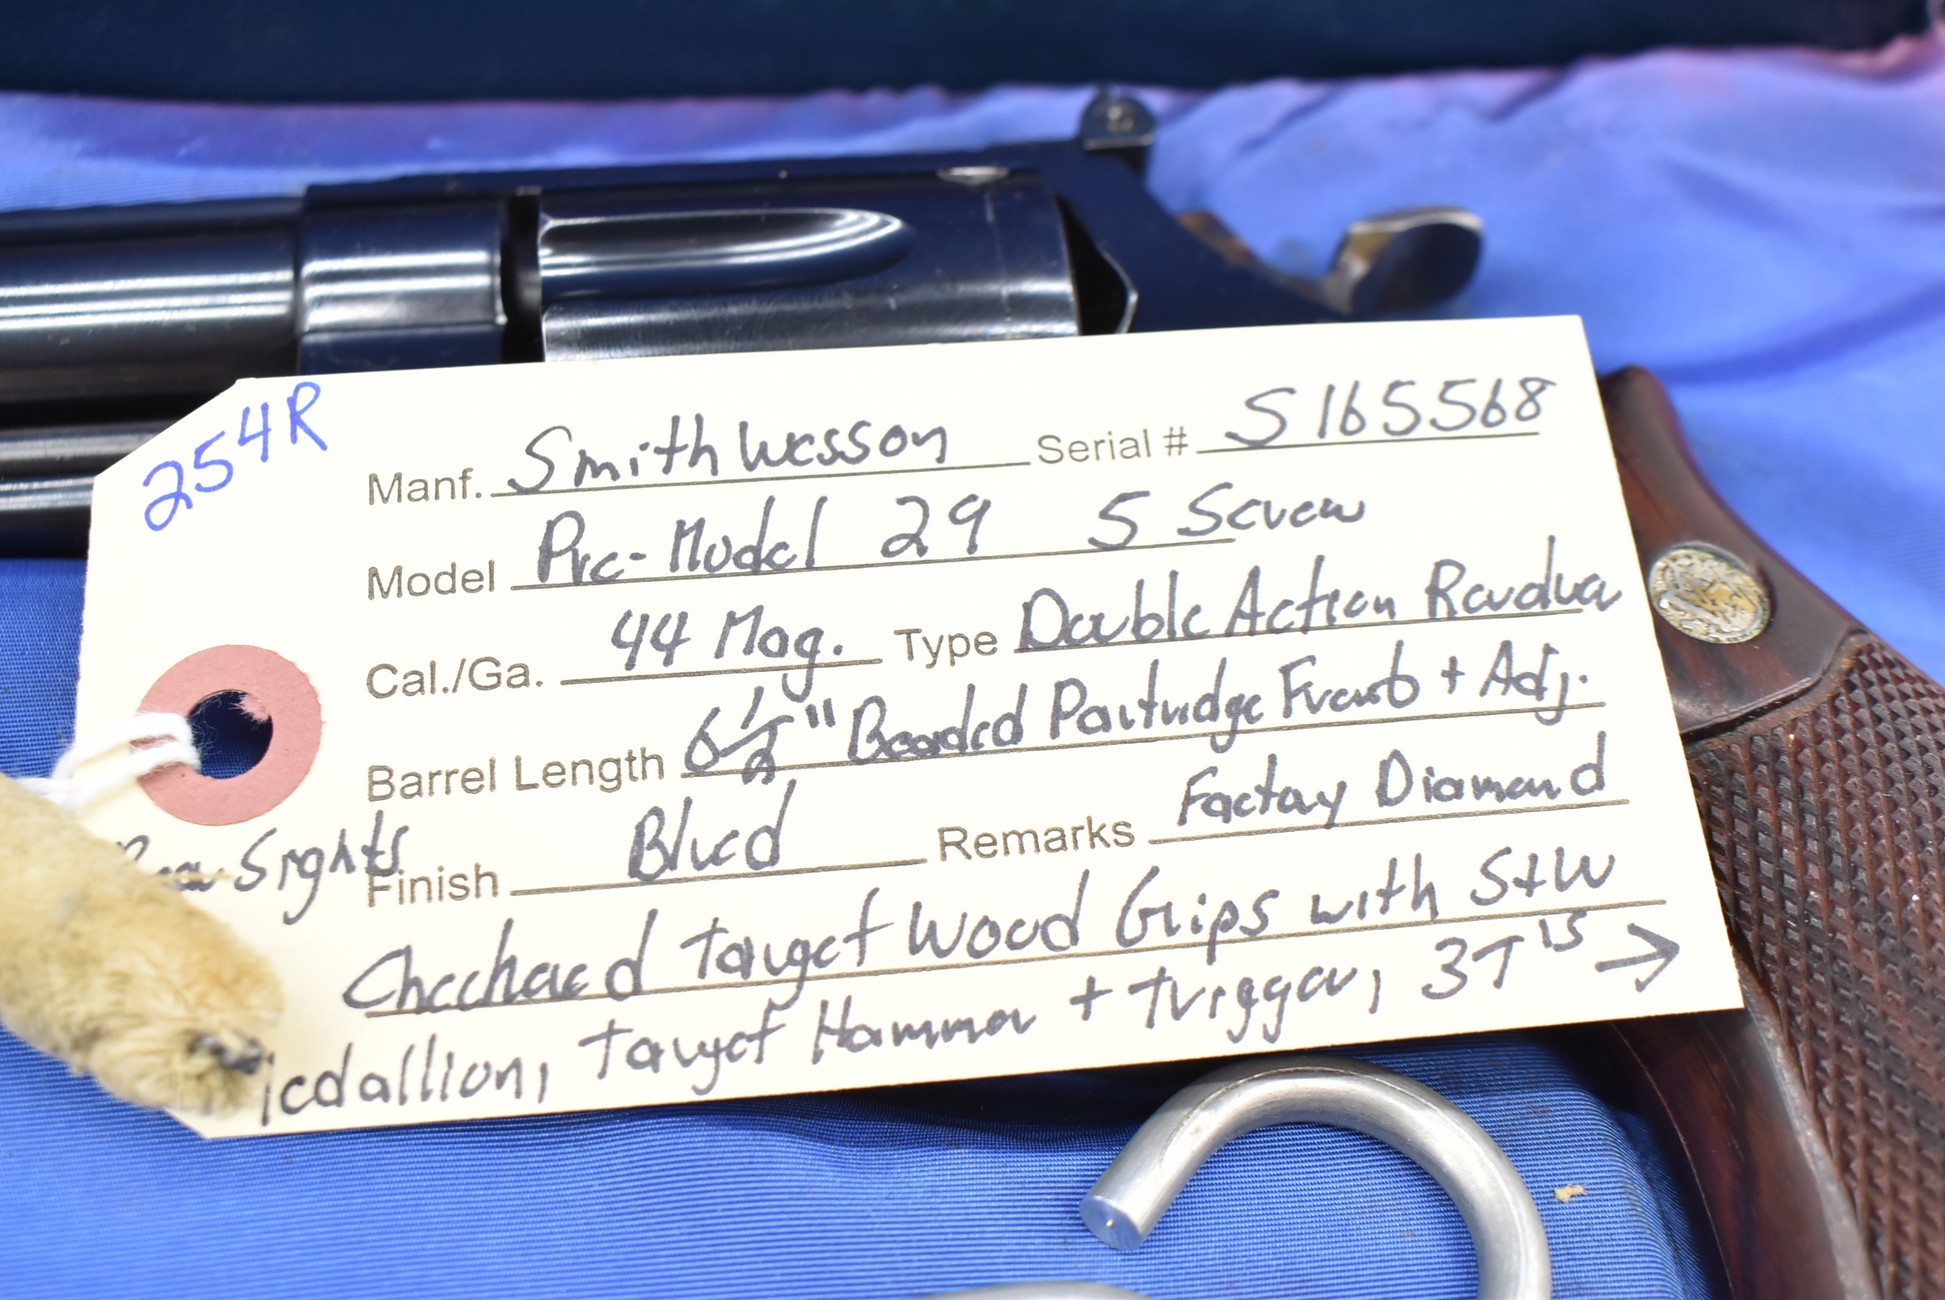 254R
Manf. Smith Wesson Serial # S165568
Model Pre-Model 29 5 Screw
Cal./Ga. 44 Mag. Type Double Action Revolver
Barrel Length 6 1/2" Beaded Partridge Front + Adj.
Rear Sights
Finish Blued Remarks Factory Diamond
Checkered Target Wood Grips with S+W
Medallion, Target Hammer + trigger, 3T's →